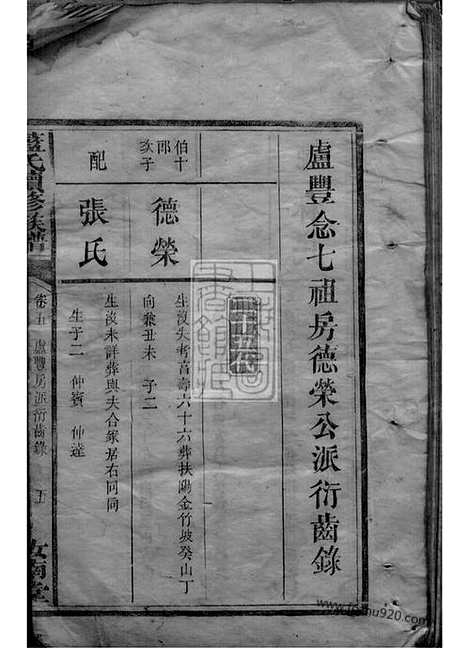 盧豐念七祖房德榮公派衍齒錄
十五代
伯十郎
次子
德榮
生沒失考音壽六十六葬扶陽金竹坡癸山丁
向兼丑未 子二
配
張氏
生沒未詳葬與夫合穴居右同向
生子二 仲賓 仲達
藍氏續修族譜
卷五 盧豐房派衍齒錄
五
汝南堂